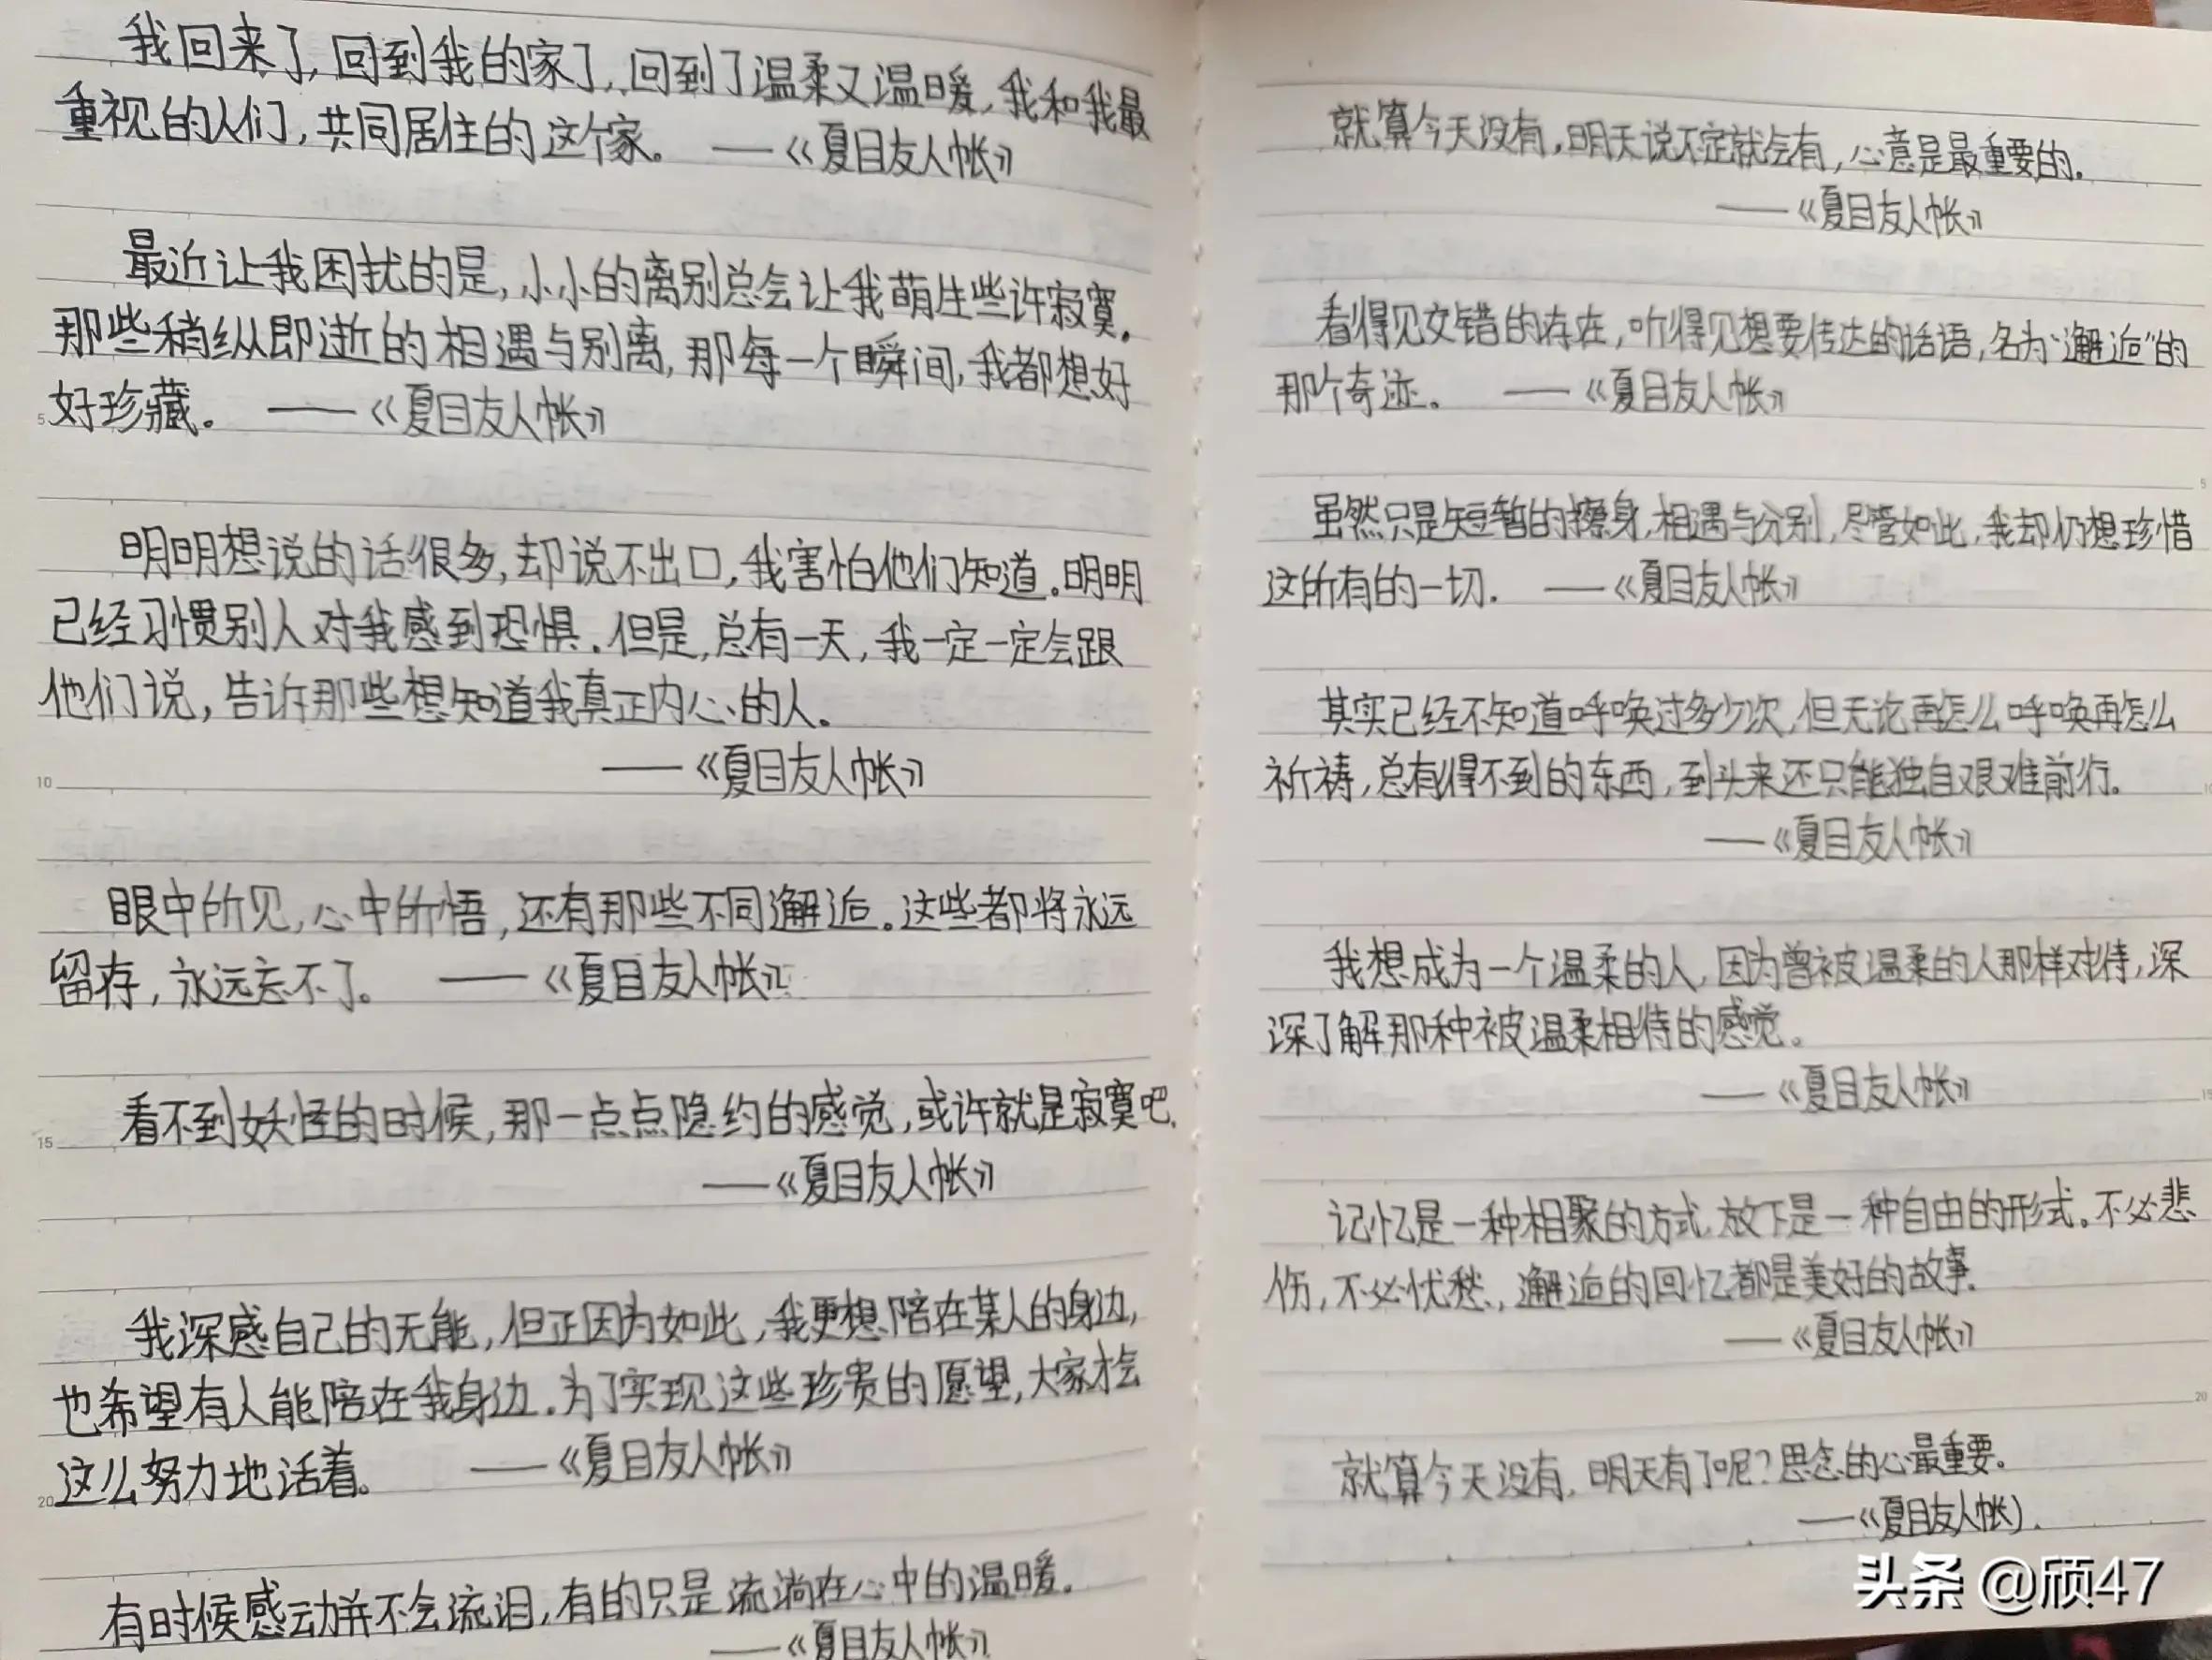 我回来了，回到我的家了，回到了温柔又温暖，我和我最
重视的人们，共同居住的这个家。 ——《夏目友人帐》
最近让我困扰的是，小小的离别总会让我萌生些许寂寞。
那些稍纵即逝的相遇与别离，那每一个瞬间，我都想好
5
好珍藏。 ——《夏目友人帐》
明明想说的话很多，却说不出口，我害怕他们知道。明明
已经习惯别人对我感到恐惧。但是，总有一天，我一定一定会跟
他们说，告诉那些想知道我真正内心的人。
——《夏目友人帐》
10
眼中所见，心中所悟，还有那些不同邂逅。这些都将永远
留存，永远忘不了。 ——《夏目友人帐》
看不到妖怪的时候，那一点点隐约的感觉，或许就是寂寞吧。
15
——《夏目友人帐》
我深感自己的无能，但正因为如此，我更想陪在某人的身边，
也希望有人能陪在我身边。为了实现这些珍贵的愿望，大家才会
这么努力地活着。 ——《夏目友人帐》
20
有时候感动并不会流泪，有的只是流淌在心中的温暖。
——《夏目友人帐》
就算今天没有，明天说不定就会有，心意是最重要的。
——《夏目友人帐》
看得见交错的存在，听得见想要传达的话语，名为“邂逅”的
那个奇迹。 ——《夏目友人帐》
5
虽然只是短暂的擦身，相遇与分别，尽管如此，我却仍想珍惜
这所有的一切。 ——《夏目友人帐》
其实已经不知道呼唤过多少次，但无论再怎么呼唤再怎么
祈祷，总有得不到的东西，到头来还只能独自艰难前行。
10
——《夏目友人帐》
我想成为一个温柔的人，因为曾被温柔的人那样对待，深
深了解那种被温柔相待的感觉。
——《夏目友人帐》
15
记忆是一种相聚的方式，放下是一种自由的形式。不必悲
伤，不必忧愁，邂逅的回忆都是美好的故事。
——《夏目友人帐》
20
就算今天没有，明天有了呢？思念的心最重要。
——《夏目友人帐》.
头条 @颀47